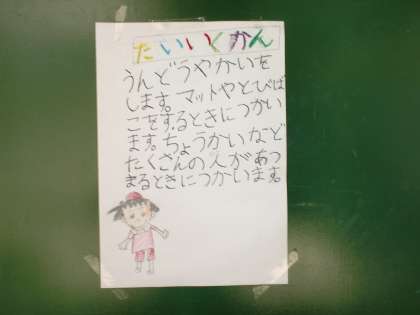 たいいくかん
うんどうやかいを
します。マットやとびば
こをするときにつかい
ます。ちょうかいなど
たくさんの人があつ
まるときにつかいます。